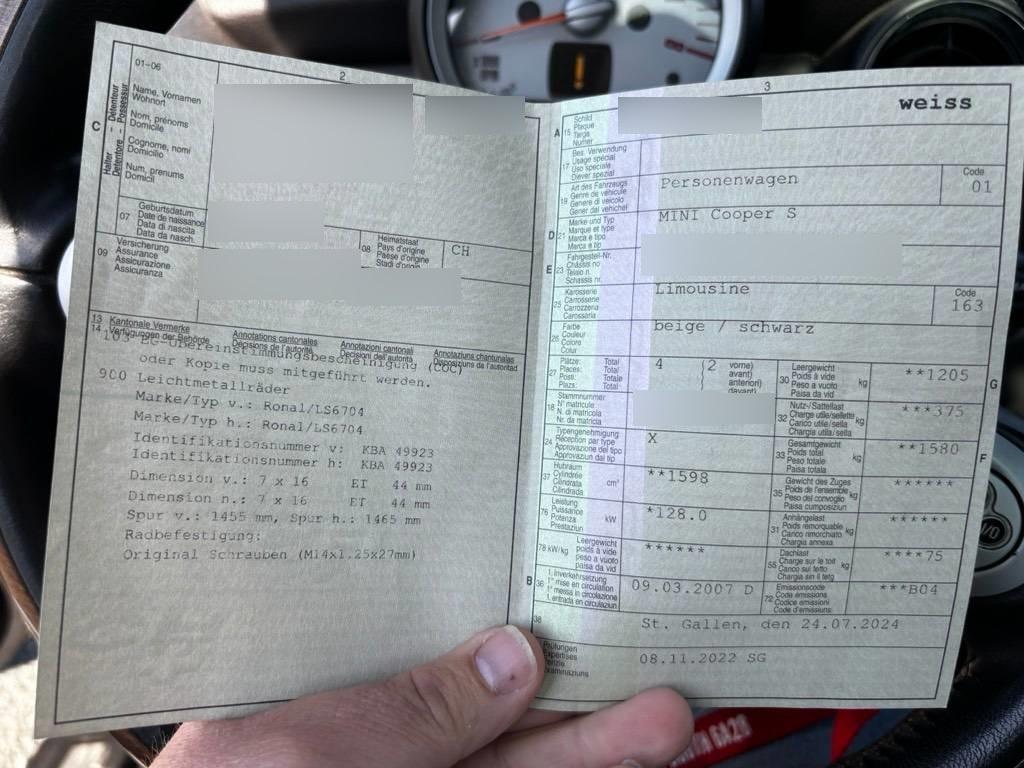 01-06
2
C
Halter – Détenteur
Detentore – Possessur
Name, Vornamen
Wohnort
Nom, prénoms
Domicile
Cognome, nomi
Domicilio
Num, prenums
Domicil
07
Geburtsdatum
Date de naissance
Data di nascita
Data da nasch.
08
Heimatstaat
Pays d'origine
Paese d'origine
Stadi d'origin
CH
09
Versicherung
Assurance
Assicurazione
Assicuranza
13 Kantonale Vermerke
14 Verfügungen der Behörde
Annotations cantonales
Décisions de l'autorité
Annotazioni cantonali
Decisioni dell'autorità
Annotaziuns chantunalas
Disposiziuns da l'autoritad
103 EG-Übereinstimmungsbescheinigung (COC)
oder Kopie muss mitgeführt werden.
900 Leichtmetallräder
Marke/Typ v.: Ronal/LS6704
Marke/Typ h.: Ronal/LS6704
Identifikationsnummer v: KBA 49923
Identifikationsnummer h: KBA 49923
Dimension v.: 7 x 16 ET 44 mm
Dimension h.: 7 x 16 ET 44 mm
Spur v.: 1455 mm, Spur h.: 1465 mm
Radbefestigung:
Original Schrauben (M14x1.25x27mm)
3
weiss
A
15
Schild
Plaque
Targa
Numer
17
Bes. Verwendung
Usage spécial
Uso speciale
Diever spezial
19
Art des Fahrzeugs
Genre de véhicule
Genere di veicolo
Gener dal vehichel
Personenwagen
Code
01
D 21
Marke und Typ
Marque et type
Marca e tipo
Marca e tip
MINI Cooper S
E 23
Fahrgestell-Nr.
Châssis no
Telaio n.
Schassis nr.
25
Karosserie
Carrosserie
Carrozzeria
Carossaria
Limousine
Code
163
26
Farbe
Couleur
Colore
Colur
beige / schwarz
27
Plätze: Total
Places: Total
Posti: Totale
Plazs: Total
4
(2
vorne)
avant)
anteriori)
davant)
30
Leergewicht
Poids à vide
Peso a vuoto
Paisa da vid
kg
**1205
G
18
Stammnummer
N° matricule
N. di matricola
Nr. da matricla
32
Nutz-/Sattellast
Charge utile/sellette
Carico utile/sella
Chargia utila/sella
kg
***375
24
Typengenehmigung
Réception par type
Approvazione del tipo
Approvaziun dal tip
X
33
Gesamtgewicht
Poids total
Peso totale
Paisa totala
kg
**1580
F
37
Hubraum
Cylindrée
Cilindrata
Cilindrada
cm³
**1598
35
Gewicht des Zuges
Poids de l'ensemble
Peso del convoglio
Paisa cumposiziun
kg
******
76
Leistung
Puissance
Potenza
Prestaziun
kW
*128.0
31
Anhängelast
Poids remorquable
Carico rimorchiato
Chargia annexa
kg
******
78 kW/kg
Leergewicht
poids à vide
peso a vuoto
paisa da vid
******
55
Dachlast
Charge sur le toit
Carico sul tetto
Chargia sin il tetg
kg
****75
B 36
1. Inverkehrsetzung
1re mise en circulation
1a messa in circolazione
1. entrada en circulaziun
09.03.2007 D
72
Emissionscode
Code émissions
Codice emissioni
Code d'emissiuns
***B04
38
St. Gallen, den 24.07.2024
Prüfungen
Expertises
08.11.2022 SG